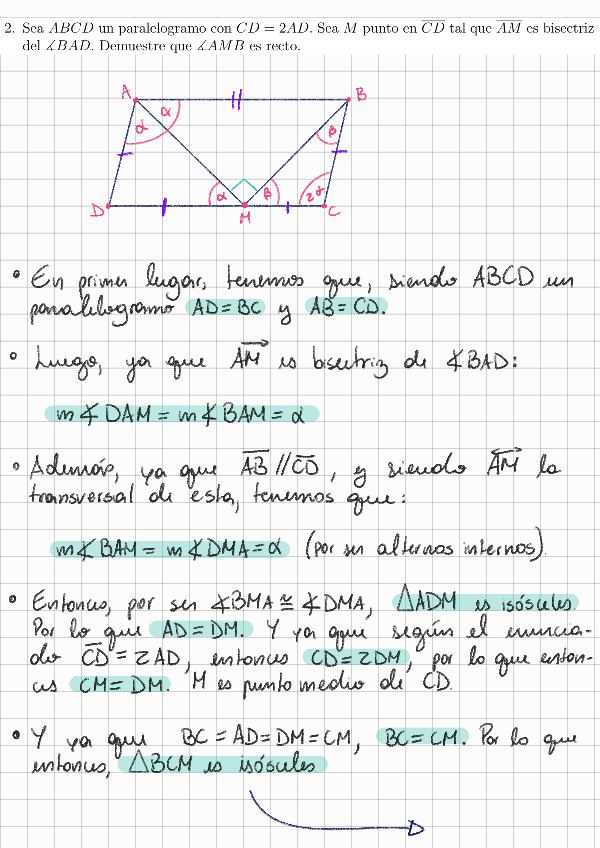 2. Sea ABCD un paralelogramo con CD = 2AD. Sea M punto en CD tal que AM es bisectriz
del ∡BAD. Demuestre que ∡AMB es recto.
A
B
α
α
β
D
α
β
2α
M
C
• En primer lugar, tenemos que, siendo ABCD un
paralelogramo AD = BC y AB = CD.
• Luego, ya que AM es bisectriz de ∡BAD:
m∡DAM = m∡BAM = α
• Además, ya que AB // CD, y siendo AM la
transversal de esta, tenemos que:
m∡BAM = m∡DMA = α (por ser alternos internos).
• Entonces, por ser ∡BMA ≅ ∡DMA, △ADM es isósceles.
Por lo que AD = DM. Y ya que según el enuncia-
do CD = 2AD, entonces CD = 2DM, por lo que enton-
ces CM = DM. M es punto medio de CD.
• Y ya que BC = AD = DM = CM, BC = CM. Por lo que
entonces, △BCM es isósceles